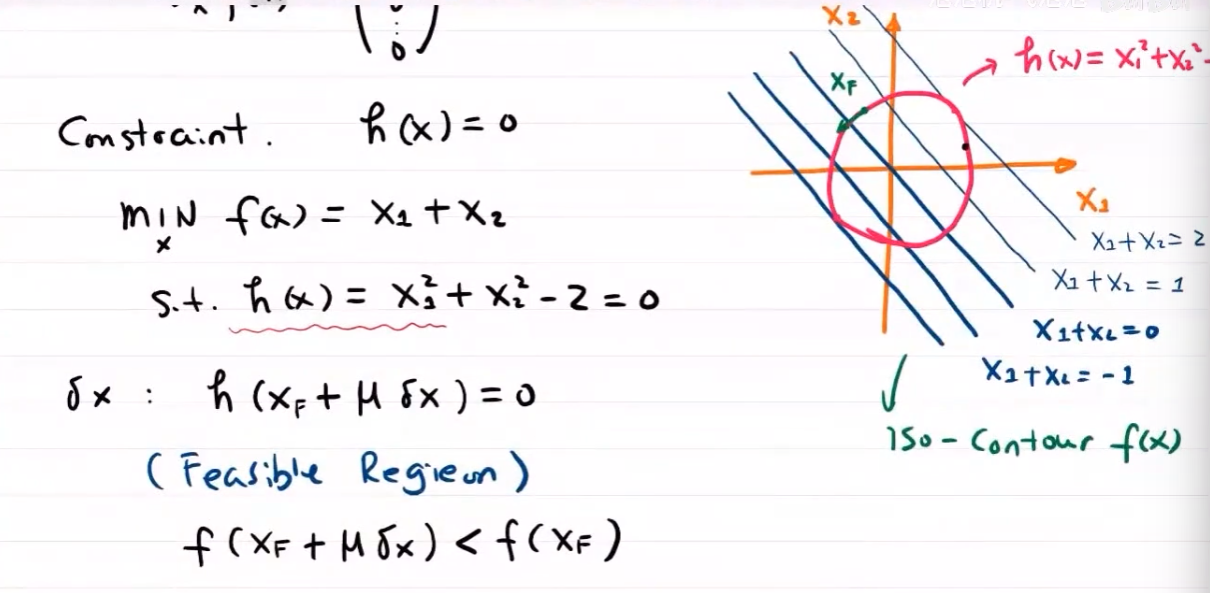 (⋮ 0)
Constraint. h(x) = 0
MIN f(x) = x₁ + x₂
x
s.t. h(x) = x₁² + x₂² - 2 = 0
δx : h(x_F + μ δx) = 0
(Feasible Regieon)
f(x_F + μ δx) < f(x_F)
x₂
x_F
h(x) = x₁² + x₂² -
x₁
x₁ + x₂ = 2
x₁ + x₂ = 1
x₁ + x₂ = 0
x₁ + x₂ = -1
ISO - Contour f(x)